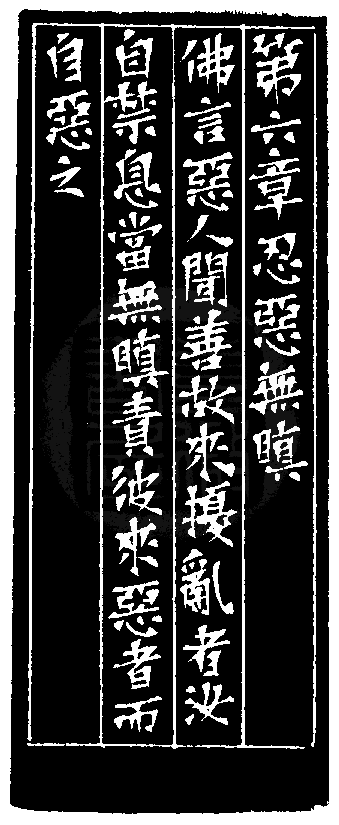 第六章忍惡無瞋
佛言惡人聞善故來擾亂者汝
自禁息當無瞋責彼來惡者而
自惡之